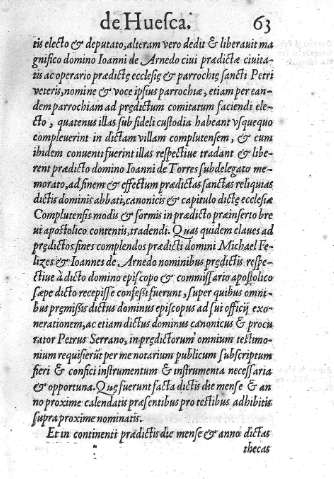 de Huesca. 63
tis electo & deputato, alteram vero dedit & liberauit ma
gnifico domino Ioanni de Arnedo ciui prædictæ ciuita
tis ac operario prædictę ecclesię & parrochię sancti Petri
veteris, nomine & voce ipsius parrochiæ, etiam per ean
dem parrochiam ad prędictum comitatum faciendi ele-
cto, quatenus illas sub fideli custodia habeant vsquequo
compleuerint in dictam villam complutensem, & cum
ibidem conuenti fuerint illas respectiue tradant & libe-
rent prædicto domino Ioanni de Torres subdelegato me-
morato, ad finem & effectum prædictas sanctas reliquias
dictis dominis abbati, canonicis & capitulo dictę ecclesiæ
Complutensis modis & formis in prædicto præinserto bre
ui apostolico contentis, tradendi. Quas quidem claues ad
prędictos fines complendos prædicti domini Michael Fe-
lizes & Ioannes de Arnedo nominibus prędictis respe-
ctiue à dicto domino episcopo & commissario apostolico
sæpe dicto recepisse confessi fuerunt, super quibus omni-
bus pręmissis dictus dominus episcopus ad sui officij exo-
nerationem, ac etiam dictus dominus canonicus & procu
rator Petrus Serrano, in prędictorum omnium testimo-
nium requisierũt per me notarium publicum subscriptum
fieri & confici instrumentum & instrumenta necessaria
& opportuna. Quę fuerunt facta dictis die mense & an
no proxime calendatis præsentibus pro testibus adhibitis
supra proxime nominatis.
Et in continenti prædictis die mense & anno dictas
thecas